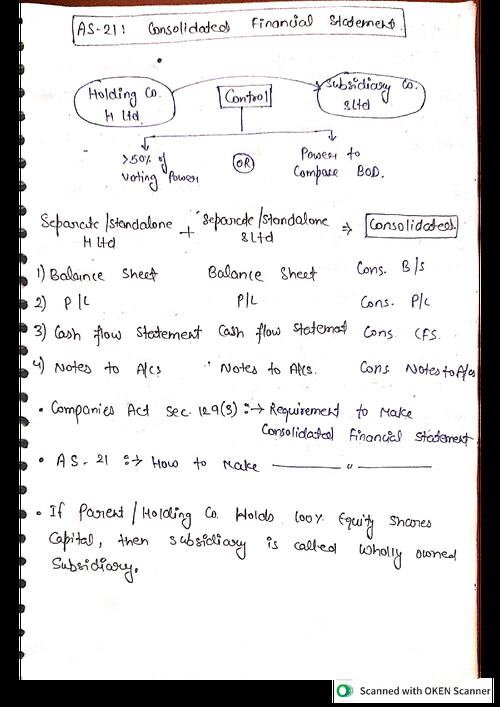 AS-21: Consolidated Financial Statement.
Holding Co. H Ltd.
Control
Subsidiary Co. S Ltd
>50% of Voting Power
OR
Power to Compose BOD.
Separate/Standalone H Ltd + Separate/Standalone S Ltd ⇒ Consolidated
1) Balance Sheet Balance Sheet Cons. B/S
2) P/L P/L Cons. P/L
3) Cash flow Statement Cash flow Statemnt Cons. CFS.
4) Notes to A/cs Notes to A/cs. Cons. Notes to A/cs
• Companies Act Sec. 129(3) :→ Requirement to Make
Consolidated Financial Statement
• AS-21 :→ How to Make —— " ——
• If Parent/Holding Co. Holds 100% Equity Shares
Capital, then subsidiary is called Wholly owned
Subsidiary.
Scanned with OKEN Scanner